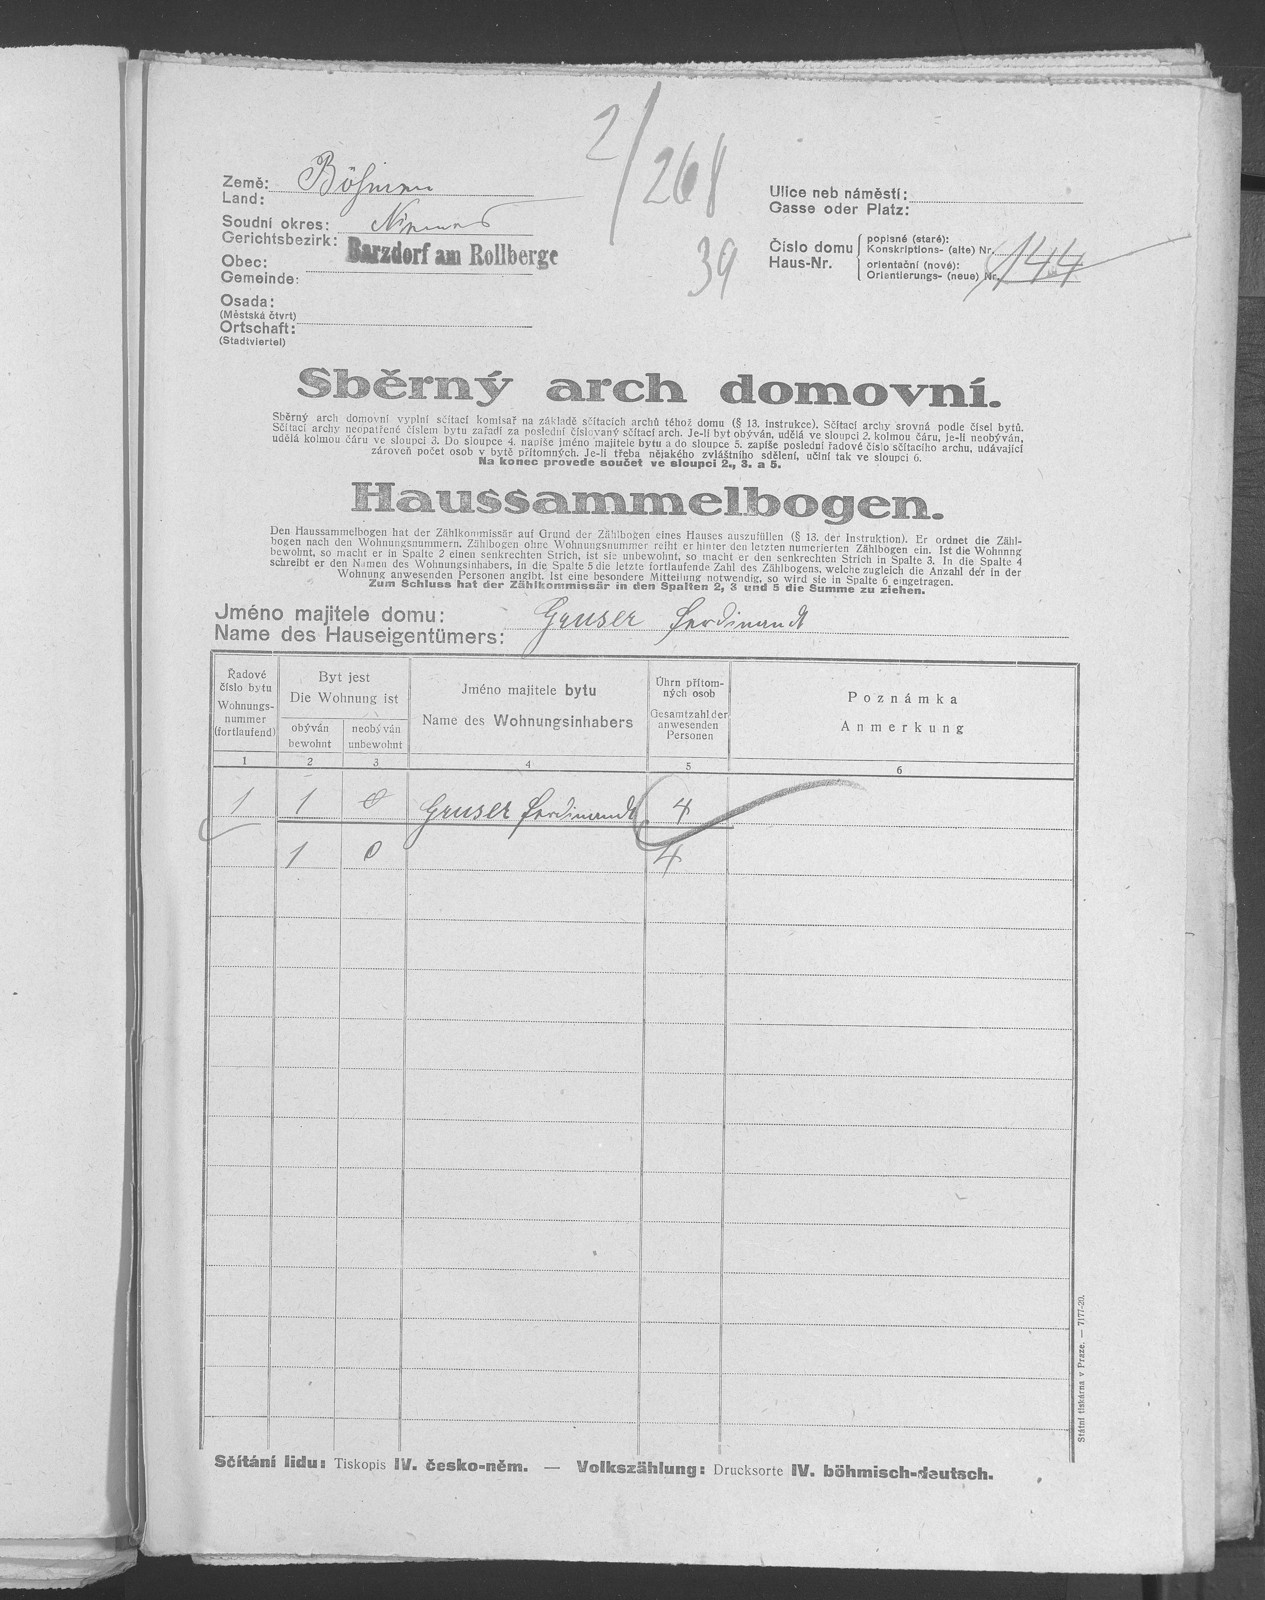 2/268
39
Země: Böhmen
Land:
Soudní okres: Niemes
Gerichtsbezirk:
Barzdorf am Rollberge
Obec:
Gemeinde:
Osada:
(Městská čtvrt)
Ortschaft:
(Stadtviertel)
Ulice neb náměstí:
Gasse oder Platz:
Číslo domu popisné (staré):
Konskriptions- (alte) Nr. 144
Haus-Nr. orientační (nové):
Orientierungs- (neue) Nr.
Sběrný arch domovní.
Sběrný arch domovní vyplní sčítací komisař na základě sčítacích archů téhož domu (§ 13. instrukce). Sčítací archy srovná podle čísel bytů.
Sčítací archy neopatřené číslem bytu zařadí za poslední číslovaný sčítací arch. Je-li byt obýván, udělá ve sloupci 2. kolmou čáru, je-li neobýván,
udělá kolmou čáru ve sloupci 3. Do sloupce 4. napíše jméno majitele bytu a do sloupce 5. zapíše poslední řadové číslo sčítacího archu, udávající
zároveň počet osob v bytě přítomných. Je-li třeba nějakého zvláštního sdělení, učiní tak ve sloupci 6.
Na konec provede součet ve sloupci 2., 3. a 5.
Haussammelbogen.
Den Haussammelbogen hat der Zählkommissär auf Grund der Zählbogen eines Hauses auszufüllen (§ 13. der Instruktion). Er ordnet die Zähl-
bogen nach den Wohnungsnummern. Zählbogen ohne Wohnungsnummer reiht er hinter den letzten numerierten Zählbogen ein. Ist die Wohnung
bewohnt, so macht er in Spalte 2 einen senkrechten Strich, ist sie unbewohnt, so macht er den senkrechten Strich in Spalte 3. In die Spalte 4
schreibt er den Namen des Wohnungsinhabers, in die Spalte 5 die letzte fortlaufende Zahl des Zählbogens, welche zugleich die Anzahl der in der
Wohnung anwesenden Personen angibt. Ist eine besondere Mitteilung notwendig, so wird sie in Spalte 6 eingetragen.
Zum Schluss hat der Zählkommissär in den Spalten 2, 3 und 5 die Summe zu ziehen.
Jméno majitele domu: Gauser Ferdinandt
Name des Hauseigentümers:
Řadové
číslo bytu
Wohnungs-
nummer
(fortlaufend)
Byt jest
Die Wohnung ist
obýván
bewohnt
neobýván
unbewohnt
Jméno majitele bytu
Name des Wohnungsinhabers
Úhrn přítom-
ných osob
Gesamtzahl der
anwesenden
Personen
Poznámka
Anmerkung
1 2 3 4 5 6
1 1 0 Gauser Ferdinandt 4
1 0 4
Státní tiskárna v Praze. — 7177-20.
Sčítání lidu: Tiskopis IV. česko-něm. — Volkszählung: Drucksorte IV. böhmisch-deutsch.